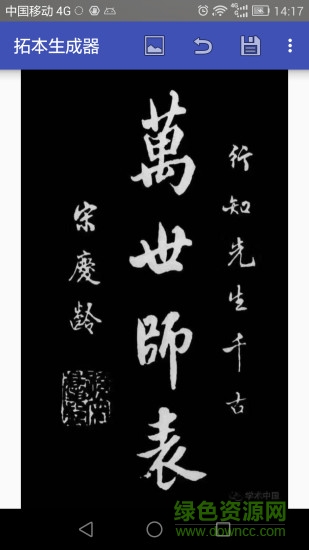 中国移动 4G
14:17
拓本生成器
行知先生千古
萬世師表
宋慶龄
学术中国
绿色资源网
www.downcc.com